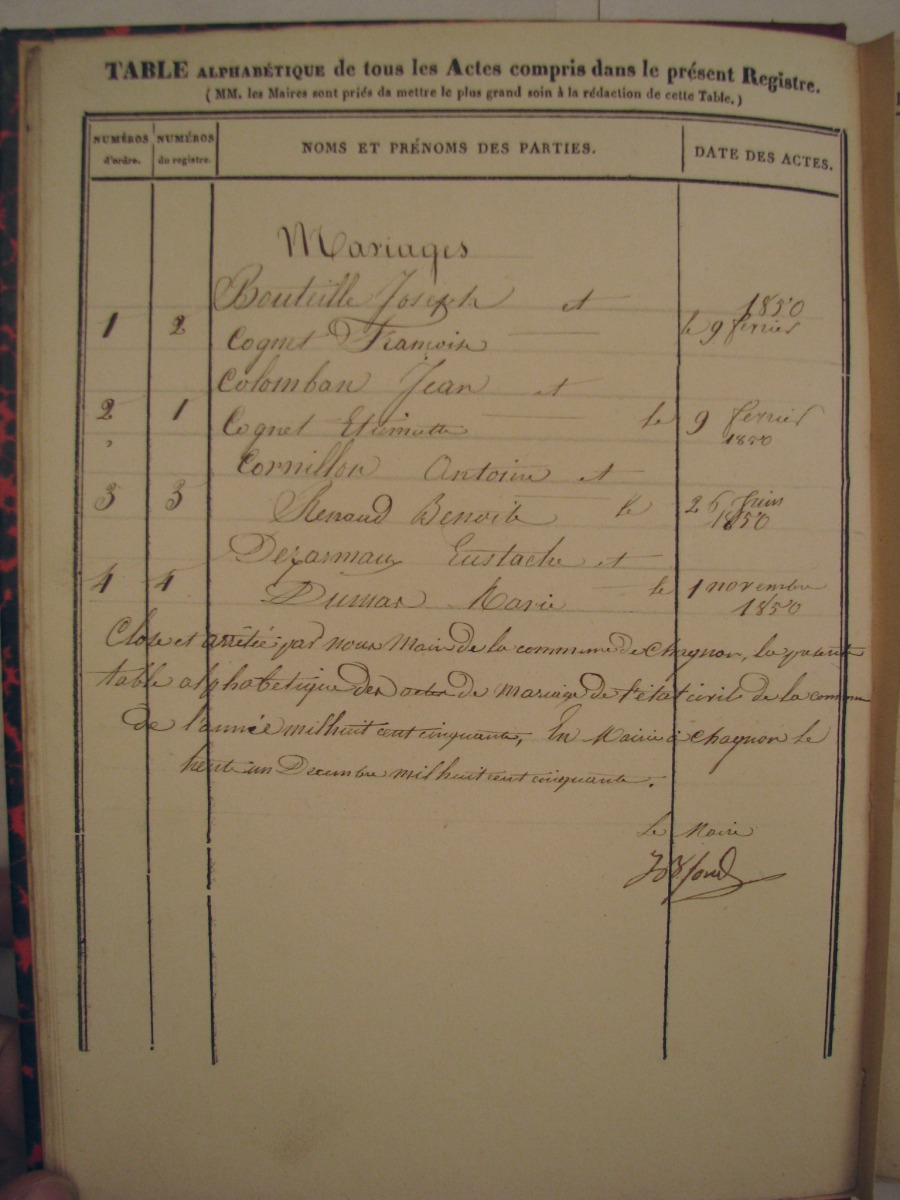 TABLE ALPHABÉTIQUE de tous les Actes compris dans le présent Registre.
( MM. les Maires sont priés da mettre le plus grand soin à la rédaction de cette Table. )
NUMÉROS d'ordre. NUMÉROS du registre. NOMS ET PRÉNOMS DES PARTIES. DATE DES ACTES.
Mariages
Bouteille Joseph et 1850
1 2 Cognet Francoise le 9 fevrier
Colomban Jean et
2 1 Cognet Etiennette le 9 fevrier
1850
Cornillon Antoine et
3 3 Renaud Benoite le 26 Juin
1850
Dezarmaux Eustache et
4 4 Dumas Marie le 1 novembre
1850
Close et arrêtée par nous Maire de la commune de Chagnon, la présente
table alphabetique des actes de mariage de l'état civil de la commune
de l'année mil huit cent cinquante, En Mairie à Chagnon le
trente un Decembre mil huit cent cinquante.
Le Maire